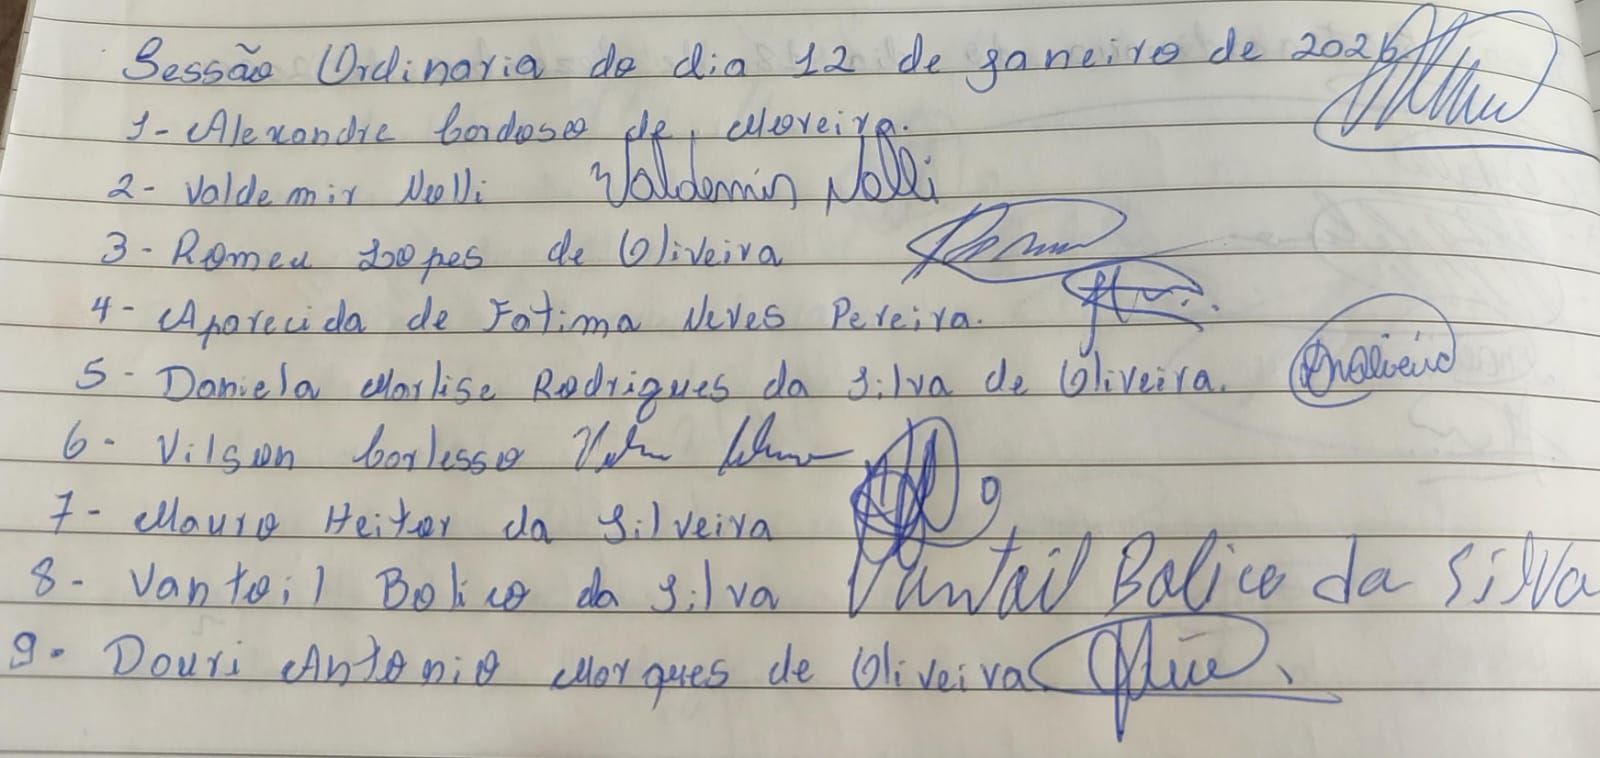 Sessão Ordinaria do dia 12 de janeiro de 2026
1- Alexandre Cardoso de Moreira.
2- Valdemir Nolli Valdemir Nolli
3- Romeu Lopes de Oliveira
4- Aparecida de Fatima Neves Pereira.
5- Daniela Marlise Rodrigues da Silva de Oliveira.
6- Vilson Carlesso
7- Mauro Heitor da Silveira
8- Vantoil Bolico da Silva Vantoil Balico da Silva
9- Douri Antonio Marques de Oliveira